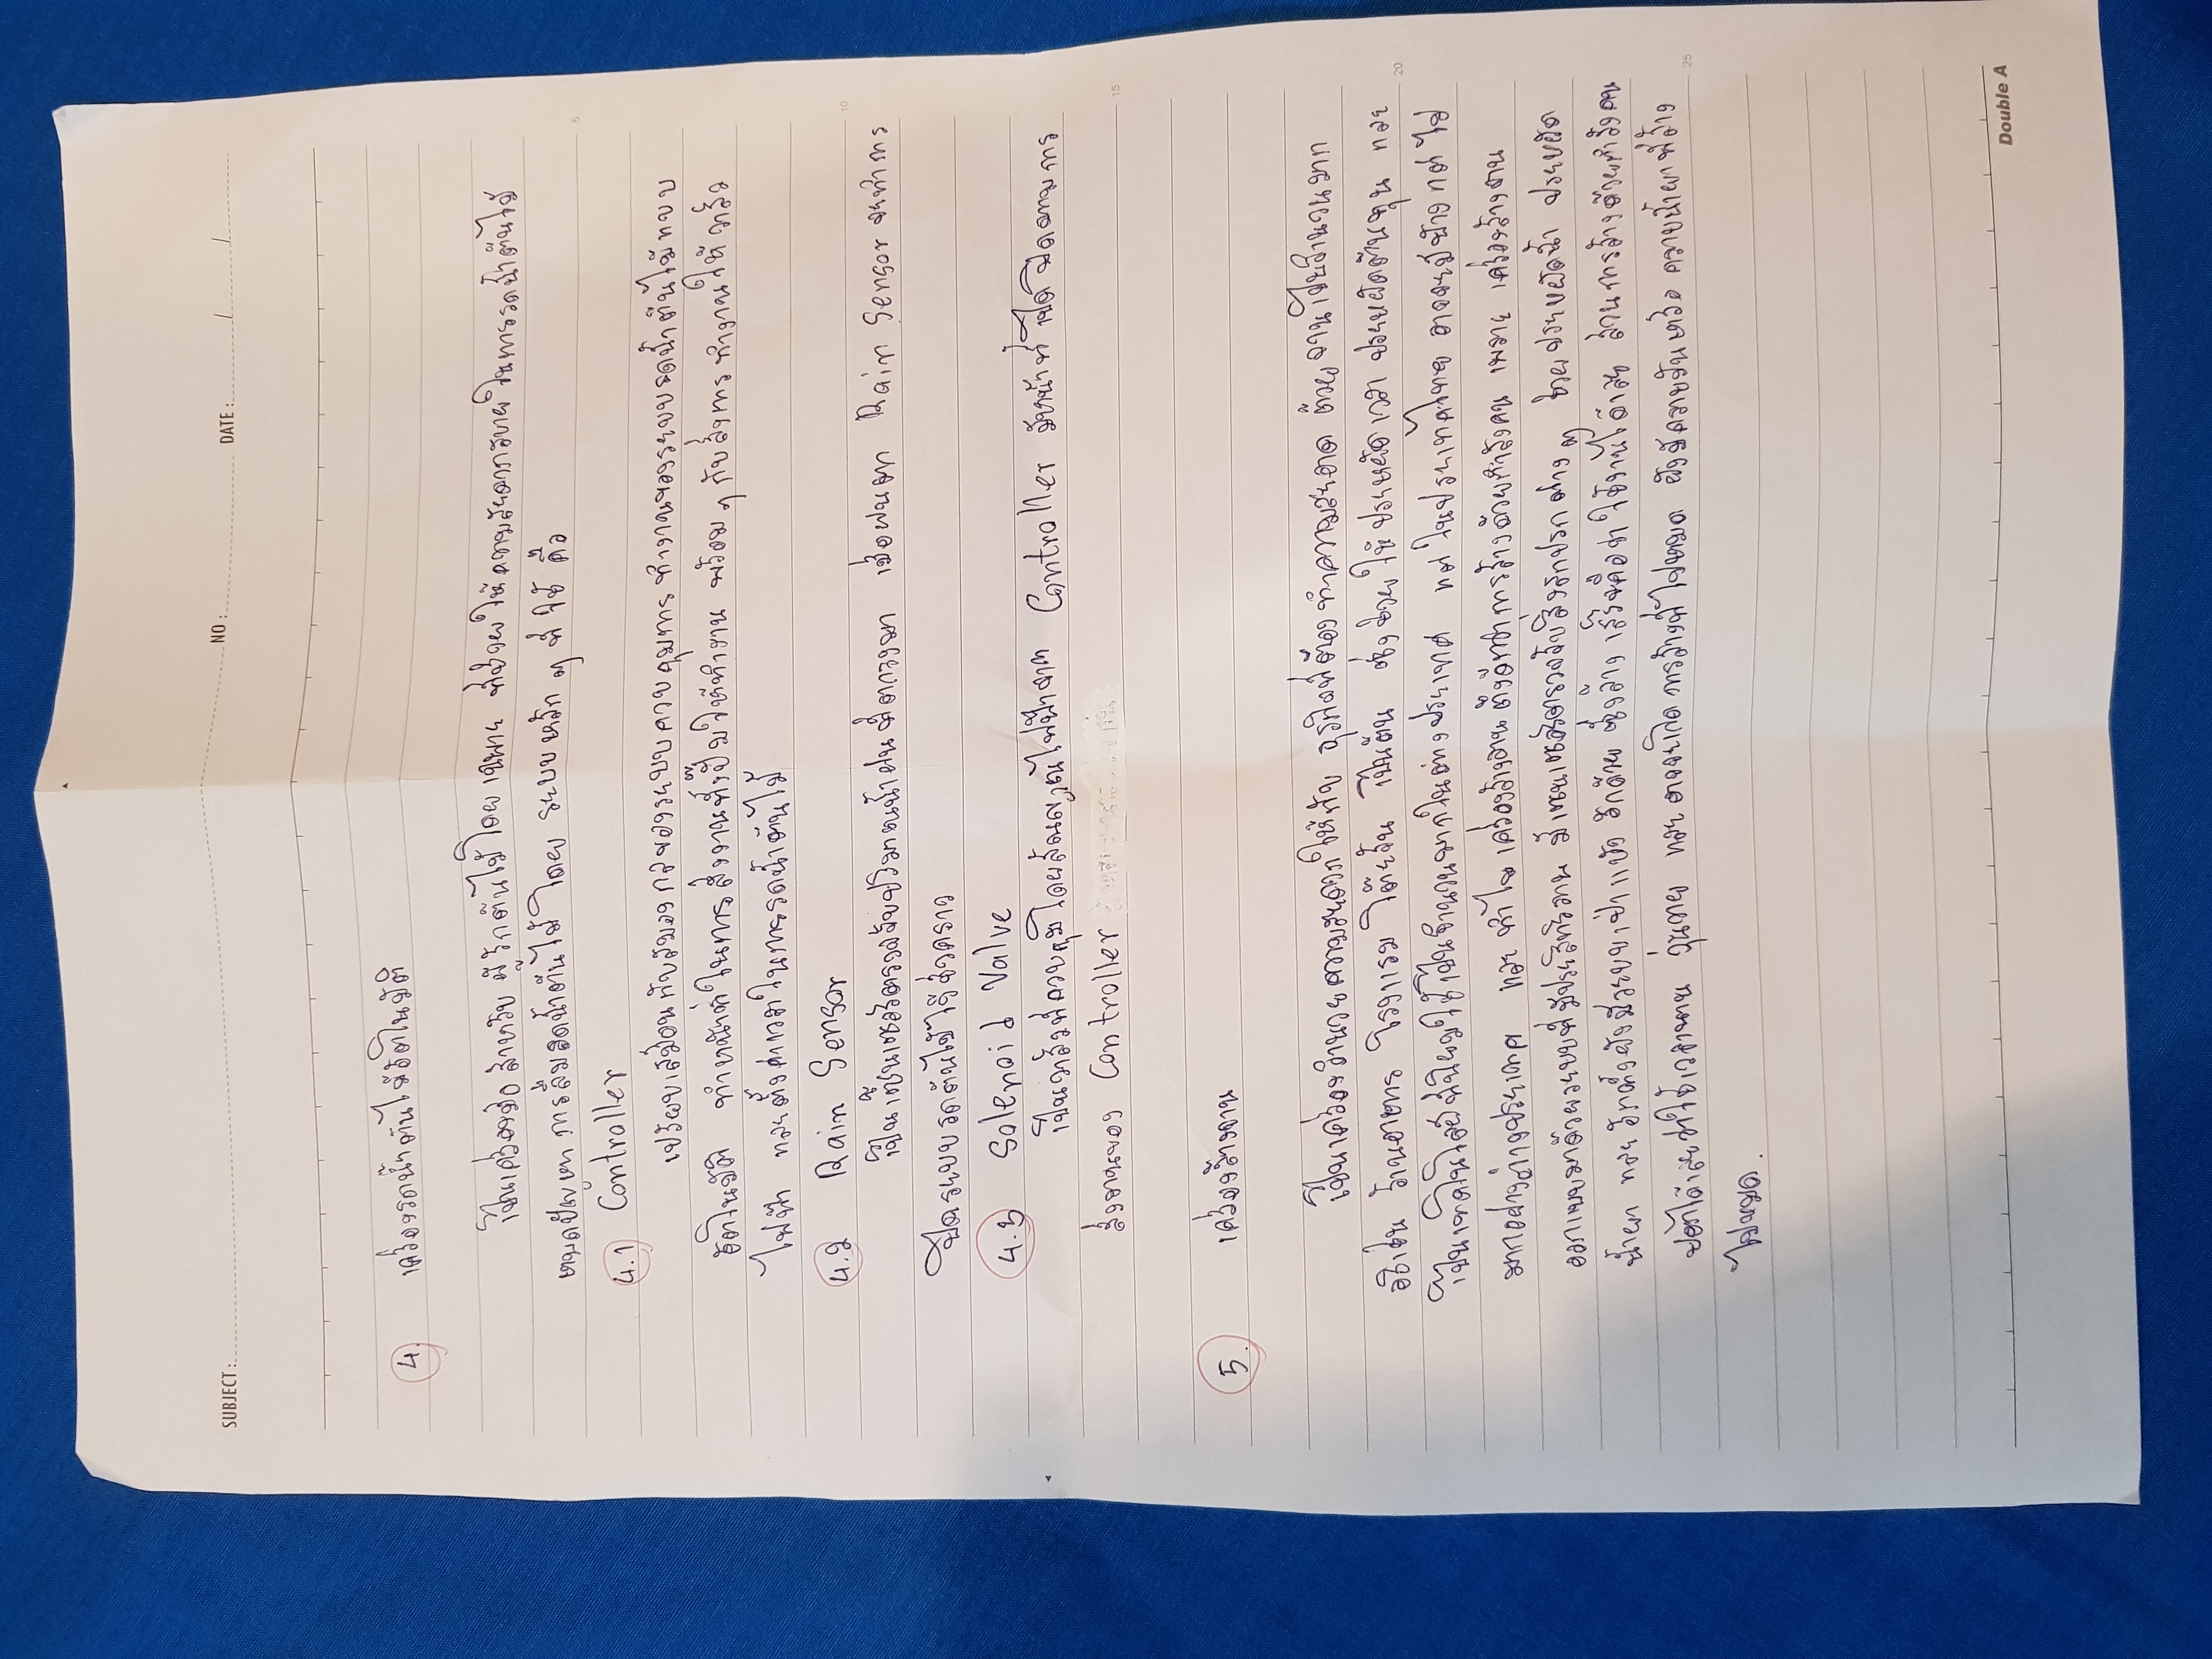 SUBJECT : NO : DATE : / /
4. เครื่องรดน้ำต้นไม้อัตโนมัติ
เป็นเครื่องมือ สำหรับ ผู้รักต้นไม้โดยเฉพาะ ที่ช่วยให้ความสะดวกสบายในการรดน้ำต้นไม้
หมดปัญหา การลืมรดน้ำต้นไม้ โดย ระบบหลัก ๆ ที่ ใช้ คือ
4.1 Controller
เปรียบเสมือนกับสมองกลของระบบควบคุมการทำงานของระบบรดน้ำต้นไม้แบบ
อัตโนมัติ ทำหน้าที่ในการสั่งงานทั้งปั๊มให้ทำงาน พร้อม ๆ กับสั่งการทำงานให้วาล์ว
ไฟฟ้า และตั้งค่าเวลาในการรดน้ำต้นไม้
4.2 Rain Sensor
เป็นเซ็นเซอร์ตรวจจับปริมาณน้ำฝนที่ตกลงมา เมื่อฝนตก Rain Sensor จะทำการ
ปิดระบบรดต้นไม้ไว้ชั่วคราว
4.3 Solenoid Valve
เป็นวาล์วที่ควบคุมโดยสัญญาณไฟฟ้าจาก Controller มีหน้าที่ เปิด ปิดตามการ
สั่งงานของ Controller
5. เครื่องล้างจาน
เป็นเครื่องอำนวยความสะดวกให้กับ ธุรกิจที่ต้องทำความสะอาด ถ้วยจานเป็นจำนวนมาก
อธิเช่น ร้านอาหาร โรงแรม โต๊ะจีน เป็นต้น ซึ่งช่วยให้ประหยัดเวลา ประหยัดต้นทุน และ
เป็นเทคโนโลยีที่นิยมใช้เป็นจำนวนมากในต่างประเทศ แต่ในประเทศไทย อาจจะมีบ้างแต่ ไม่
มากอย่างต่างประเทศ และ ทำไมเครื่องล้างจานถึงดีกว่าการล้างด้วยกำลังคน เพราะ เครื่องล้างจาน
ออกแบบมาด้วยระบบที่มีประสิทธิภาพ มีเซนเซอร์ตรวจจับสิ่งสกปรกต่าง ๆ ช่วยประหยัดน้ำ ประหยัด
น้ำยา และ อีกทั้งยังมีระบบเป่าแห้ง อีกด้วย ซึ่งล้าง เสร็จคือว่าใช้งานได้เลย ส่วนการล้างด้วยกำลังคน
บอกได้เลยว่าใช้เวลานาน วุ่นวาย และอาจจะเกิดการล้างที่ไม่หมด ยังมีคราบมันหรือ คราบน้ำยาที่ล้าง
ไม่หมด.
5
10
15
20
25
Double A